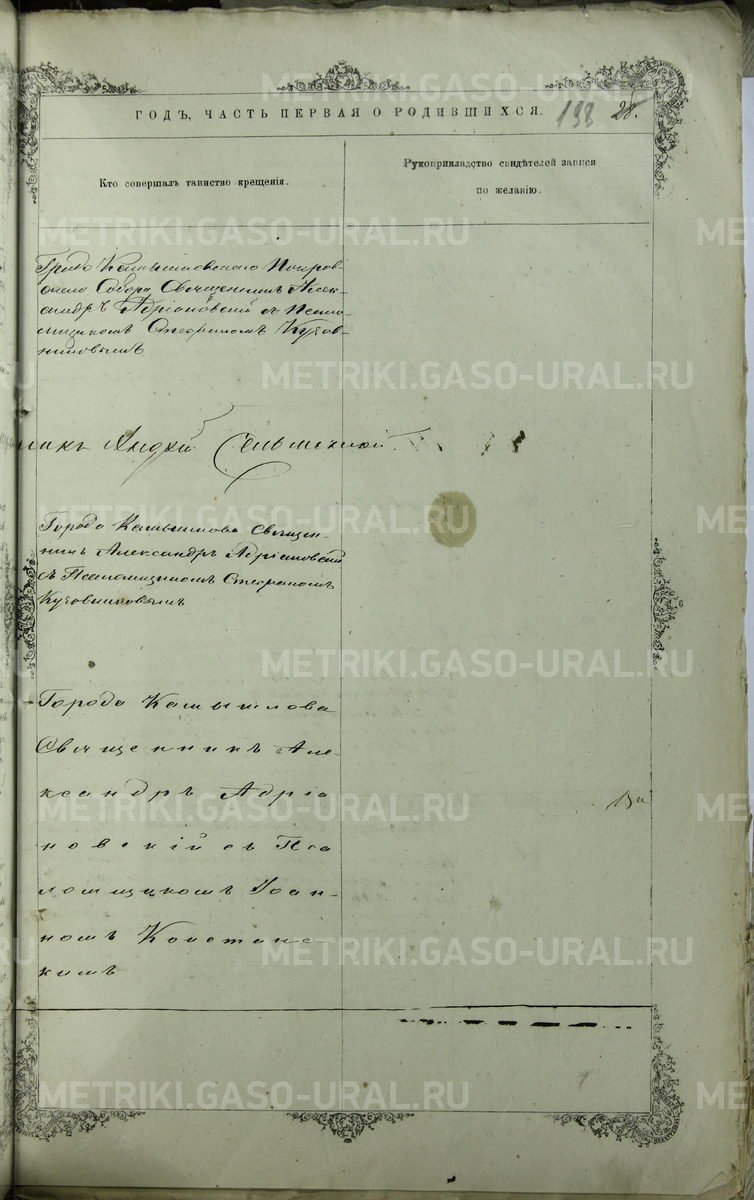 ГОДЪ, ЧАСТЬ ПЕРВАЯ О РОДИВШИХСЯ. 198 28.
Кто совершалъ таинство крещенія.
Рукоприкладство свидѣтелей записи
по желанію.
Града Камышловскаго Покров-
скаго Собора Священникъ Алек-
сандръ Адріановскій съ Псало-
мщикомъ Стефаномъ Кузов-
никовымъ
Андрей
Города Камышлова Священ-
никъ Александръ Адріановскій
съ Псаломщикомъ Стефаномъ
Кузовниковымъ
Города Камышлова
Священникъ Але-
ксандръ Адріа
новскій съ Пса
ломщикомъ Іоан-
номъ
кимъ
METRIKI.GASO-URAL.RU